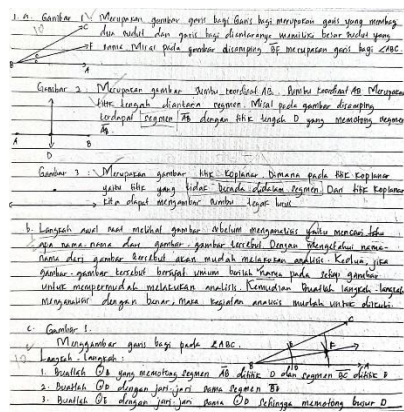 1. A. Gambar 1. Merupakan gambar garis bagi. Garis bagi merupakan garis yang membagi
dua sudut dan garis bagi diantaranya memiliki besar sudut yang
sama. Misal pada gambar disamping BF merupakan garis bagi ∠ABC.
C
F
B
A
Gambar 2 : Merupakan gambar sumbu koordinat AB. Sumbu koordinat AB Merupakan
titik tengah diantara segmen. Misal pada gambar disamping
terdapat segmen AB dengan titik tengah D yang memotong segmen
AB.
A B
D
Gambar 3 : Merupakan gambar titik koplanar. Dimana pada titik koplanar
yaitu titik yang tidak berada didalam segmen. Dari titik koplanar
kita dapat mengambar sumbu tegak lurus
b. Langkah awal saat melihat gambar sebelum menganalisis yaitu mencari tahu
apa nama-nama dari gambar-gambar tersebut. Dengan mengetahui nama-
nama dari gambar tersebut akan mudah melakukan analisis. Kedua, jika
gambar-gambar tersebut bersifat umum berilah nama pada setiap gambar
untuk mempermudah melakukan analisis. Kemudian buatlah langkah-langkah
menganalisis dengan benar, maka kegiatan analisis mudah untuk diikuti.
c. Gambar 1.
10
Menggambar garis bagi pada ∠ABC.
Langkah-langkah :
C
E
F
B
D
A
1. Buatlah ⊙B yang memotong segmen AB dititik D dan segmen BC dititik E
2. Buatlah ⊙D dengan jari-jari sama segmen
3. Buatlah ⊙E dengan jari-jari sama ⊙D sehingga memotong busur D